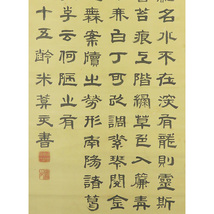 名水不在深有龍則靈斯
苔痕上階綠草色入簾青
無白丁可以調素琴閱金
無案牘之勞形南陽諸葛
子云何陋之有
十五齡米天書